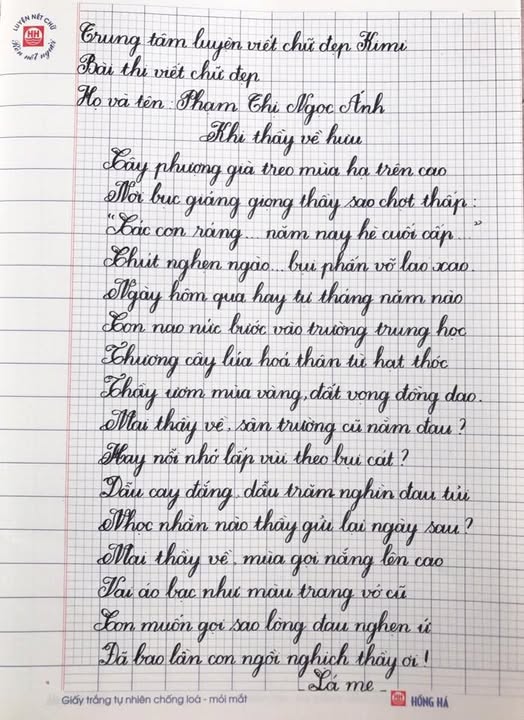 LUYỆN NÉT CHỮ
HH
Rèn nết người
Trung tâm luyện viết chữ đẹp Kimi
Bài thi viết chữ đẹp
Họ và tên: Phạm Thị Ngọc Ánh
Khi thầy về hưu
Cây phượng già treo mùa hạ trên cao
Nơi bục giảng giọng thầy sao chợt thấp:
"Các con ráng... năm nay hè cuối cấp..."
Chút nghẹn ngào... bụi phấn vỡ lao xao.
Ngày hôm qua hay tự tháng năm nào
Con nao nức bước vào trường trung học
Thương cây lúa hoá thân từ hạt thóc
Thầy ươm mùa vàng, đất vọng đồng dao.
Mai thầy về, sân trường cũ nằm đau?
Hay nỗi nhớ lấp vùi theo bụi cát?
Dẫu cay đắng, dẫu trăm nghìn đau tủi
Nhọc nhằn nào thầy gửi lại ngày sau?
Mai thầy về, mùa gọi nắng lên cao
Vai áo bạc như màu trang vở cũ
Con muốn gọi sao lòng đau nghẹn ứ
Đã bao lần con ngỗ nghịch thầy ơi!
- Lá me -
Giấy trắng tự nhiên chống loá - mỏi mắt
HH HỒNG HÀ